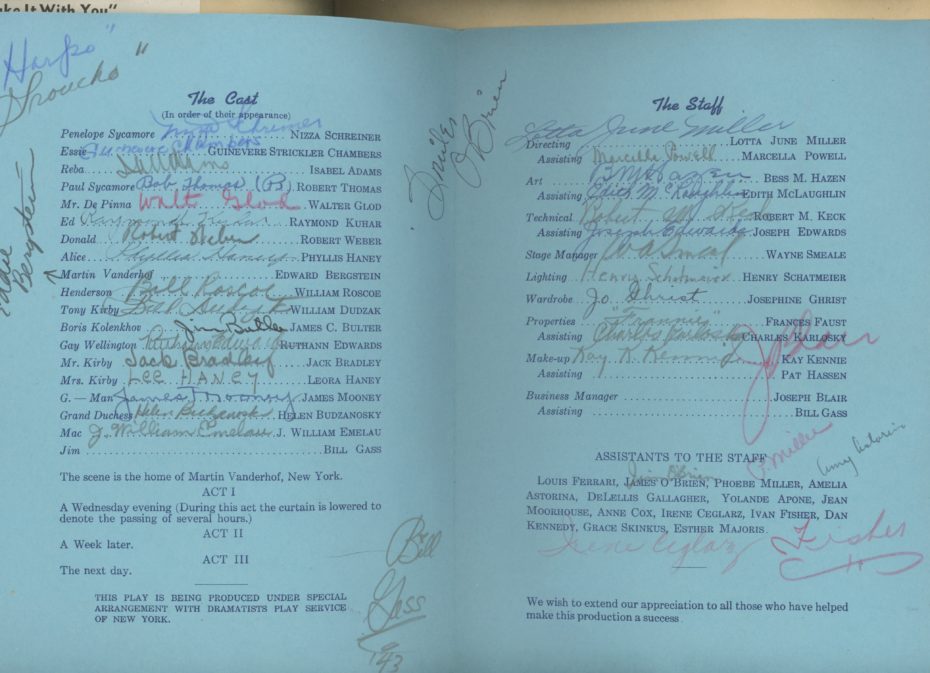 ke It With You"
"Harpo"
Groucho"
The Cast
(In order of their appearance)
Penelope Sycamore NIZZA SCHREINER
Essie Guinevere Chambers GUINEVERE STRICKLER CHAMBERS
Reba ISABEL ADAMS
Paul Sycamore Bob Thomas ROBERT THOMAS
Mr. De Pinna Walt Glod WALTER GLOD
Ed Raymond Kuhar RAYMOND KUHAR
Donald Robert Weber ROBERT WEBER
Alice Phyllis Haney PHYLLIS HANEY
Martin Vanderhof EDWARD BERGSTEIN
Eddie Bergstein
Henderson Bill Roscoe WILLIAM ROSCOE
Tony Kirby WILLIAM DUDZAK
Boris Kolenkhov Jim Butler JAMES C. BULTER
Gay Wellington Ruthann Edwards RUTHANN EDWARDS
Mr. Kirby Jack Bradley JACK BRADLEY
Mrs. Kirby LEE HANEY LEORA HANEY
G. — Man James J. Mooney JAMES MOONEY
Grand Duchess Helen Budzanosky HELEN BUDZANOSKY
Mac J. William Emelau J. WILLIAM EMELAU
Jim BILL GASS
The scene is the home of Martin Vanderhof, New York.
ACT I
A Wednesday evening (During this act the curtain is lowered to
denote the passing of several hours.)
ACT II
A Week later.
ACT III
The next day.
THIS PLAY IS BEING PRODUCED UNDER SPECIAL
ARRANGEMENT WITH DRAMATISTS PLAY SERVICE
OF NEW YORK.
Bill
Gass
'43
O'Brien
The Staff
Lotta June Miller
Directing LOTTA JUNE MILLER
Assisting Marcella Powell MARCELLA POWELL
Art BM Hazen BESS M. HAZEN
Assisting Edith McLaughlin EDITH MCLAUGHLIN
Technical Robert M. Keck ROBERT M. KECK
Assisting Joseph Edwards JOSEPH EDWARDS
Stage Manager WAYNE SMEALE
Lighting Henry Schatmeier HENRY SCHATMEIER
Wardrobe Jo Ghrist JOSEPHINE GHRIST
Properties "Frannie" FRANCES FAUST
Assisting Charles Karlosky CHARLES KARLOSKY
Make-up Kay K. Kennie KAY KENNIE
Assisting PAT HASSEN
Business Manager JOSEPH BLAIR
J Blair
Assisting BILL GASS
P. Miller
Amy Astorin
ASSISTANTS TO THE STAFF
Jim O'Brien
LOUIS FERRARI, JAMES O'BRIEN, PHOEBE MILLER, AMELIA
ASTORINA, DELELLIS GALLAGHER, YOLANDE APONE, JEAN
MOORHOUSE, ANNE COX, IRENE CEGLARZ, IVAN FISHER, DAN
KENNEDY, GRACE SKINKUS, ESTHER MAJORIS.
Irene Ceglarz
Fisher
We wish to extend our appreciation to all those who have helped
make this production a success.